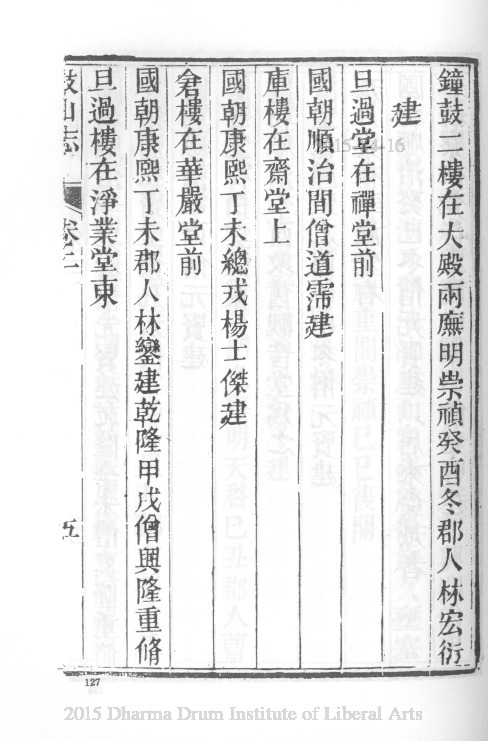 鐘鼓二樓在大殿兩廡明崇禎癸酉冬郡人林宏衍
建
旦過堂在禪堂前
國朝順治間僧道霈建
庫樓在齋堂上
國朝康熙丁未總戎楊士傑建
倉樓在華嚴堂前
國朝康熙丁未郡人林鑾建乾隆甲戌僧興隆重脩
旦過樓在淨業堂東
鼓山志 卷二 五
127
2015 Dharma Drum Institute of Liberal Arts